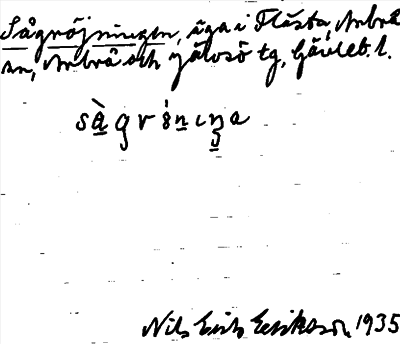 Sågröjningen, äga i Flästa, Arbrå
sn, Arbrå och Järvsö tg, Gävleb. l.
sàgrönıŋa
Nils Erik Eriksson 1935